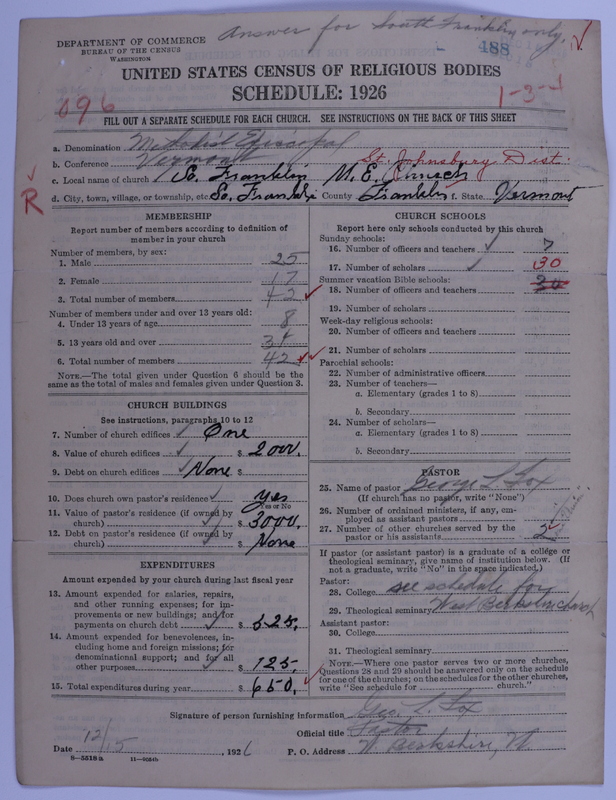 Answer for South Franklin only.
DEPARTMENT OF COMMERCE
BUREAU OF THE CENSUS
WASHINGTON
488
UNITED STATES CENSUS OF RELIGIOUS BODIES
SCHEDULE: 1926
696
1-3-4
FILL OUT A SEPARATE SCHEDULE FOR EACH CHURCH. SEE INSTRUCTIONS ON THE BACK OF THIS SHEET
a. Denomination Methodist Episcopal
b. Conference Vermont St. Johnsbury Dist.
c. Local name of church So. Franklin M. E. Church
R
d. City, town, village, or township, etc. So. Franklin County Franklin f. State Vermont
MEMBERSHIP
Report number of members according to definition of member in your church
Number of members, by sex:
1. Male 25
2. Female 17
3. Total number of members 42
Number of members under and over 13 years old:
4. Under 13 years of age 8
5. 13 years old and over 34
6. Total number of members 42
NOTE.—The total given under Question 6 should be the
same as the total of males and females given under Question 3.
CHURCH BUILDINGS
See instructions, paragraphs 10 to 12
7. Number of church edifices One
8. Value of church edifices $ 2000.
9. Debt on church edifices None $
10. Does church own pastor's residence yes
Yes or No
11. Value of pastor's residence (if owned by
church) $ 3000.
12. Debt on pastor's residence (if owned by
church) $ None
EXPENDITURES
Amount expended by your church during last fiscal year
13. Amount expended for salaries, repairs,
and other running expenses; for im-
provements or new buildings; and for
payments on church debt $ 525.
14. Amount expended for benevolences, in-
cluding home and foreign missions; for
denominational support; and for all
other purposes $ 125.
15. Total expenditures during year $ 650.
CHURCH SCHOOLS
Report here only schools conducted by this church
Sunday schools:
16. Number of officers and teachers 7
17. Number of scholars 30
Summer vacation Bible schools:
18. Number of officers and teachers 30
19. Number of scholars
Week-day religious schools:
20. Number of officers and teachers
21. Number of scholars
Parochial schools:
22. Number of administrative officers
23. Number of teachers—
a. Elementary (grades 1 to 8)
b. Secondary
24. Number of scholars—
a. Elementary (grades 1 to 8)
b. Secondary
PASTOR
25. Name of pastor George L. Fox
(If church has no pastor, write "None")
26. Number of ordained ministers, if any, em-
ployed as assistant pastors
27. Number of other churches served by the
pastor or his assistants 2
If pastor (or assistant pastor) is a graduate of a college or
theological seminary, give name of institution below. (If
not a graduate, write "No" in the space indicated.)
Pastor:
28. College see schedule for
29. Theological seminary West Berkshire church
Assistant pastor:
30. College
31. Theological seminary
NOTE.—Where one pastor serves two or more churches,
Questions 28 and 29 should be answered only on the schedule
for one of the churches; on the schedules for the other churches,
write "See schedule for church."
Signature of person furnishing information Geo. L. Fox
Official title Pastor
Date 12/15, 1926 P. O. Address W. Berkshire, Vt
8—5518a 11—8054b